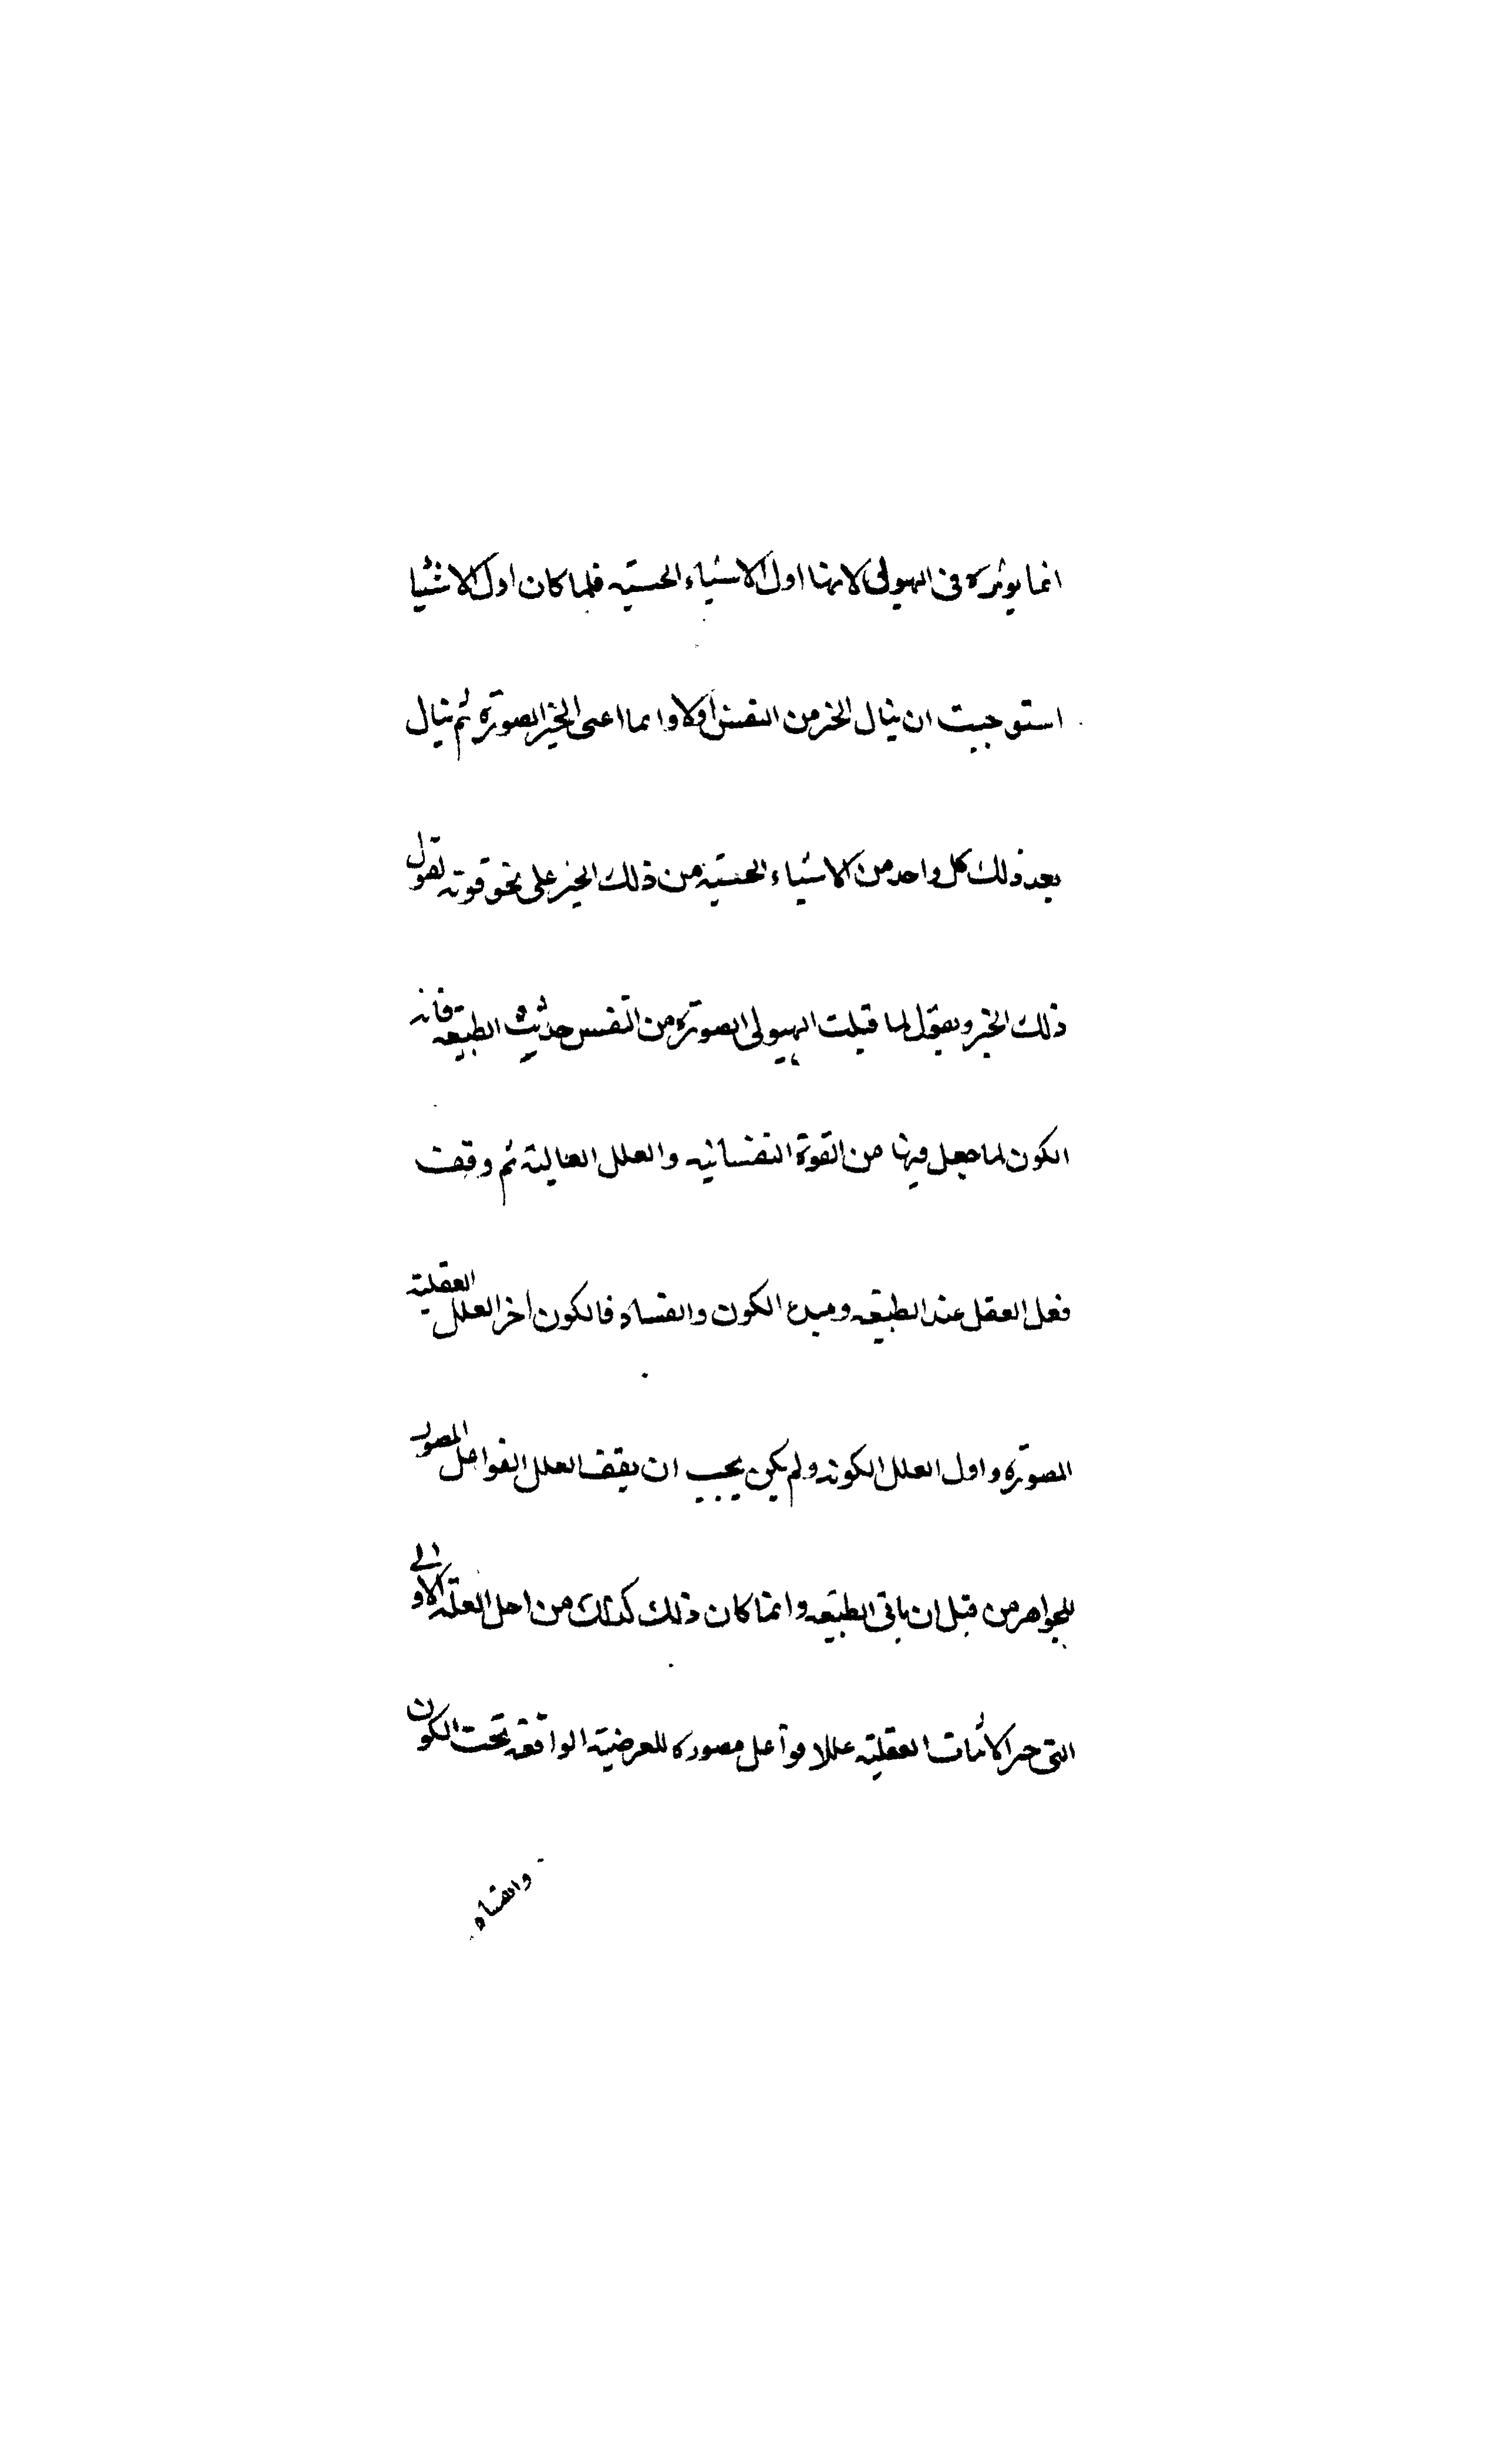 انما يوثره فى الهيولى لانها اول الاشياء الحسية فلما كان اول الاشيا
استوجبت ان ينال الخير من النفس أولا وانما اعنى بالخير الصورة ثم ينال
بعد ذلك كل واحد من الاشياء الحسية من ذلك الخير على نحو قوته لقبول
ذلك الخير ونقول لما قبلت الهيولى الصورة من النفس حدثت الطبيعه فانه
الكون لما جعل فيها من القوة النفسانيه والعلل العالية ثم وقفت
فعل العقل عند الطبيعه ومبدء الكون والفساد فالكون أخر العلل العقلية
المصورة واول العلل الكونه ولم يكن يجب ان يقف العلل الفواعل المصور
للجواهر من قبل ان ياتى الطبيعه وانما كان ذلك كذلك من اجل العلة الاولى
التى الانيات العقلية عللا فواعل مصوره للعرضية الواقعة تحت الكون
والفساد